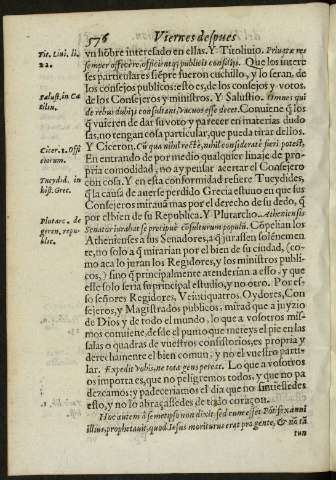 576 Viernes despues
Tit. Liui. li. 22.
vn hõbre interesado en ellas. Y Titoliuio. Priuatæ res
semper offecere, officientq; publicis consilijs. Que los intere
ses particulares siẽpre fueron cuchillo, y lo seran, de
los consejos publicos: esto es, de los consejos y votos
Salust. in Catilin.
de los Consejeros y ministros. Y Salustio. Omnes qui
de rebus dubijs consultant, vacuos esse decet. Conuiene q̃ los
q̃ vuieren de dar su voto y parecer en materias dudo
sas, no tengan cosa particular, que pueda tirar dellos.
Cicer. 1. Officiorum.
Y Ciceron.
En entrando de por medio qualquier linaje de pro-
pria comodidad, no ay pensar acertar el Consejero
Tucydid. in hist. Grec.
con cosa. Y en esta conformidad refiere Tucydides,
q̃ la causa de auerse perdido Grecia estuuo en que sus
Consejeros mirauã mas por el derecho de su dedo, q̃
Plutarc. de geren. republic.
por el bien de su Republica. Y Plutarcho. Atheniensis
Senator iurabat se precipuè consulturum populi. Cõpelian los
Athenienses a sus Senadores, a q̃ jurassen solẽnemen
te, no solo a q̃ mirarian por el bien de su ciudad, (co-
mo aca lo juran los Regidores, y los ministros publi-
cos,) sino q̃ principalmente atenderian a esso, y que
esse solo seria su principal estudio, y no otro. Por es-
so señores Regidores, Veintiquatros, Oydores, Con
sejeros, y Magistrados publicos, mirad que a juyzio
de Dios y de todo el mundo, lo que a vosotros mis-
mos conuiene, desde el punto que meteys el pie en las
salas o quadras de vuestros consistorios, es propria y
derechamente el bien comun, y no el vuestro parti-
lar. Expedit vobis, ne tota gens pereat. Lo que a vosotros
os importa es, que no peligremos todos, y que no pa
dezcamos: y padeceriamos el dia que no sintiessedes
esto, y no lo abraçassedes de todo coraçon.
Hoc autem à semetipso non dixit, sed cum esset Põtifex anni
illius, prophetauit, quod Iesus moriturus erat pro gente, & nõ tã
tun